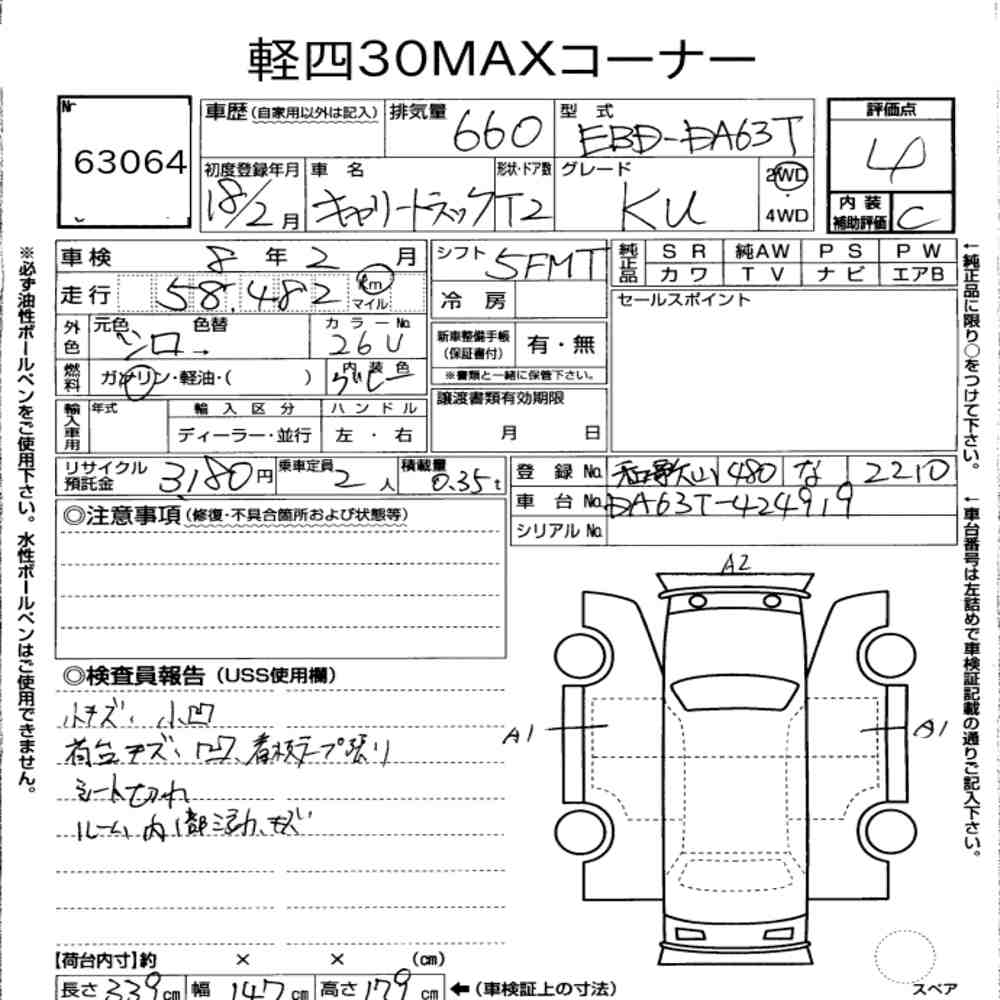 軽四30MAXコーナー
Nr
63064
車歴(自家用以外は記入)
排気量
660
型式
EBD-DA63T
評価点
4
初度登録年月
18/2月
車名
キャリートラック
形状・ドア数
T2
グレード
KU
2WD
4WD
内装
補助評価
C
車検
8年2月
シフト
5FMT
純正品
SR 純AW PS PW
カワ TV ナビ エアB
走行
58,482
km
マイル
冷房
セールスポイント
外色
元色 色替
シロ→
カラーNo.
26U
新車整備手帳
(保証書付)
有・無
※書類と一緒に保管下さい。
燃料
ガソリン・軽油・( )
内装色
グレー
輸入車用
年式
輸入区分
ディーラー・並行
ハンドル
左・右
譲渡書類有効期限
月 日
リサイクル
預託金
3,180円
乗車定員
2人
積載量
0.35t
登録No.
和歌山 480 な 2210
車台No.
DA63T-424919
シリアルNo.
◎注意事項(修復・不具合箇所および状態等)
◎検査員報告(USS使用欄)
小キズ、小凹
荷台キズ、凹、看板テープ張り
シート切れ
ルーム内1部汚れ、キズ
A2
A1
A1
スペア
【荷台内寸】約 × × (cm)
長さ339cm 幅147cm 高さ179cm ←(車検証上の寸法)
※必ず油性ボールペンをご使用下さい。水性ボールペンはご使用できません。
←純正品に限り○をつけて下さい。
←車台番号は左詰めで車検証記載の通りご記入下さい。